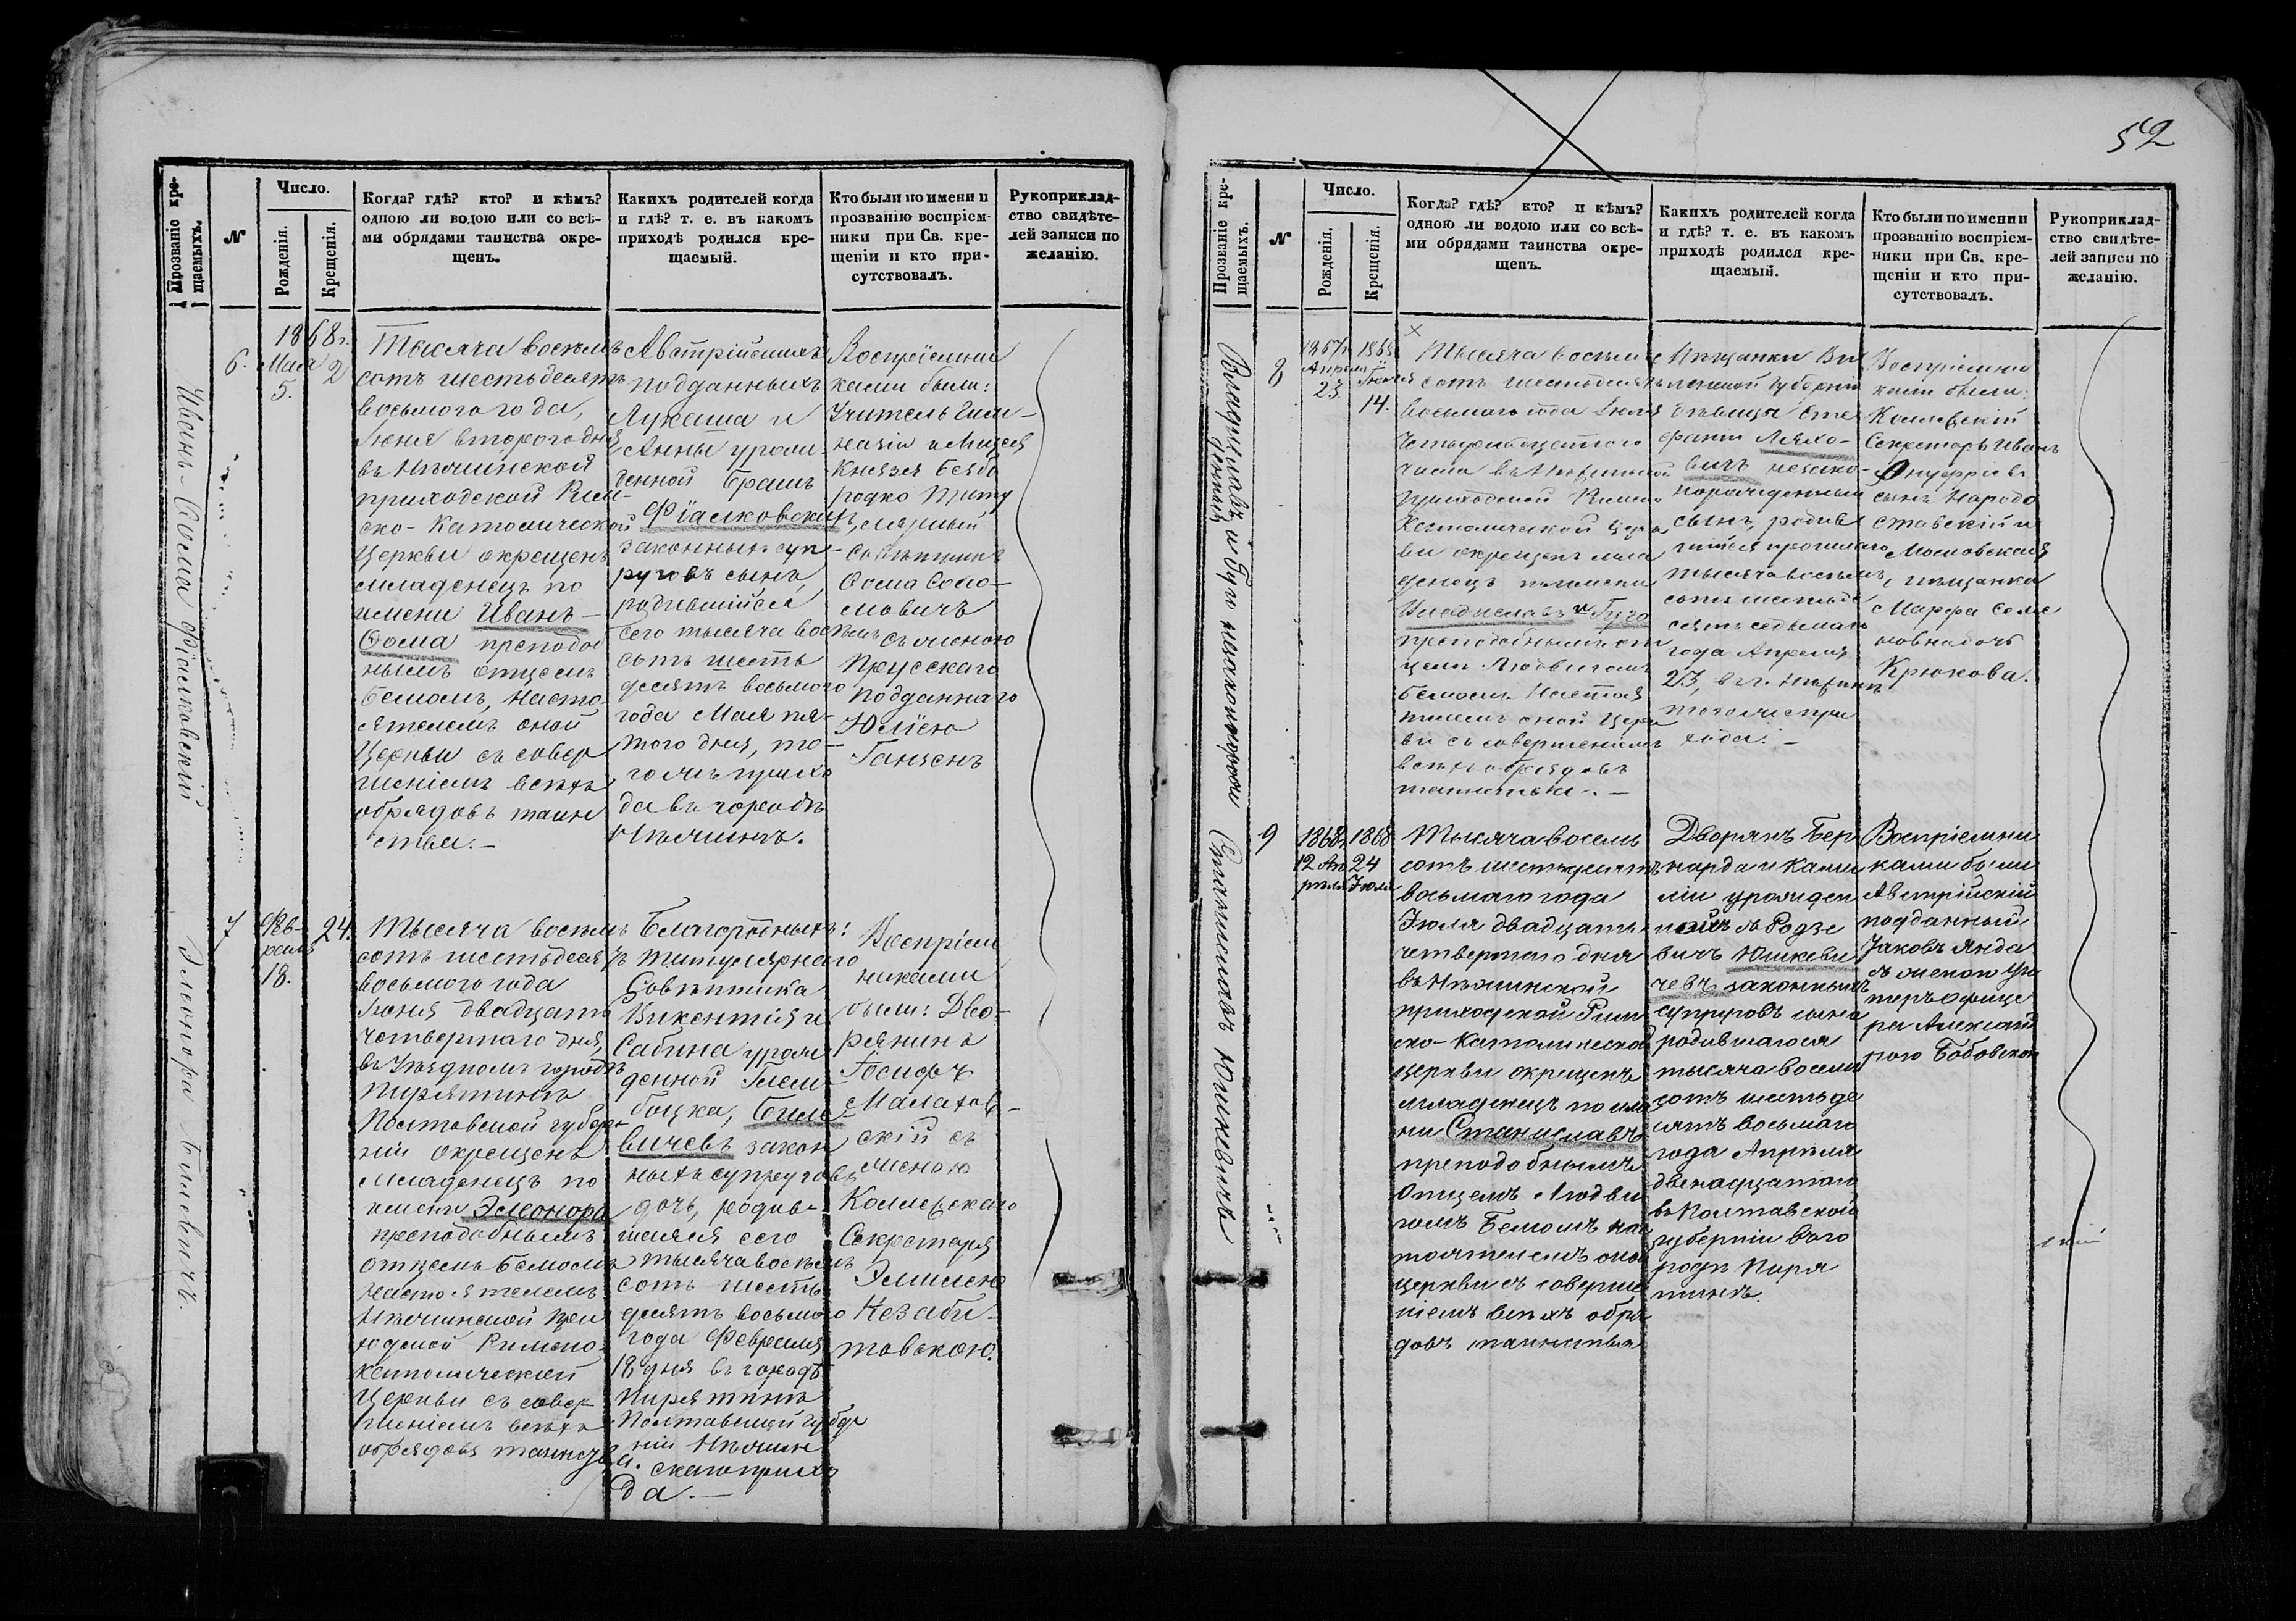 52
Прозваніе кре-
щаемыхъ.
№
Число.
Рожденія.
Крещенія.
Когда? гдѣ? кто? и кѣмъ?
одною ли водою или со всѣ-
ми обрядами таинства окре-
щенъ.
Какихъ родителей когда
и гдѣ? т. е. въ какомъ
приходѣ родился кре-
щаемый.
Кто были по имени и
прозванію воспріем-
ники при Св. кре-
щеніи и кто при-
сутствовалъ.
Рукоприклад-
ство свидѣте-
лей записи по
желанію.
Иванъ-Ѳома Фіалковскій
6.
1868 г.
Мая
5.
2
Тысяча восемь
сотъ шестьдесятъ
восьмого года,
Іюня второго дня
въ Нѣжинской
приходской Рим-
ско-Католической
Церкви окрещенъ
младенецъ по
имени Иванъ-
Ѳома преподоб
нымъ отцемъ
Бемомъ, Насто-
ятелемъ оной
Церкви съ совер
шеніемъ всѣхъ
обрядовъ таин
ства.-
Австрійскихъ
подданныхъ
Лукаша и
Анны урож-
денной Брашъ
Фіалковскихъ,
законныхъ суп-
руговъ сынъ,
родившійся
сего тысяча восемь
сотъ шесть
десятъ восьмого
года Мая пя-
того дня, то-
гожъ прихо
да въ городѣ
Нѣжинѣ.
Воспріемни
ками были:
Учитель Гим-
назіи и Лицея
Князя Безбо
родко Титу
лярный
Совѣтникъ
Ѳома
съ женою
Прусскаго
Подданнаго
Юліею
Ганзенъ
Элеонора Билевичъ.
7
Фев-
раля
18.
24.
Тысяча восемь
сотъ шестьдеся
восьмого года
Іюня двадцать
четвертаго дня,
въ Уѣздномъ городѣ
Пирятинѣ
Полтавской губер-
ніи окрещенъ
младенецъ по
имени Элеонора
преподобнымъ
отцемъ Бемомъ
Настоятелемъ
Нѣжинской при
ходской Римско-
Католической
Церкви съ совер-
шеніемъ всѣхъ
обрядовъ таинст
ва.
Благородныхъ:
Титулярнаго
Совѣтника
Викентія и
Сабина урож
денной Глем
боцка, Биле
вичевъ закон
ныхъ супруговъ
дочь, родив-
шаяся сего
тысяча восемь
сотъ шесть
десятъ восьмого
года Февраля
18 дня въ городѣ
Пирятинѣ
Полтавской губер
ніи Нѣжин
скаго прихо
да.-
Воспріем
никами
были: Дво-
рянинъ
Іосифъ
Малахов-
скій съ
женою
Коллежскаго
Секретаря
Эмилею
Незаби-
товскою.
Прозваніе кре-
щаемыхъ.
№
Число.
Рожденія.
Крещенія.
Когда? гдѣ? кто? и кѣмъ?
одною ли водою или со всѣ-
ми обрядами таинства окре-
щенъ.
Какихъ родителей когда
и гдѣ? т. е. въ какомъ
приходѣ родился кре-
щаемый.
Кто были по имени и
прозванію воспріем-
ники при Св. кре-
щеніи и кто при-
сутствовалъ.
Рукоприклад-
ство свидѣте-
лей записи по
желанію.
Владиславъ и Гуго незаконнорож
денный
8
1867 г.
Апреля
23.
1868
Іюля
14.
Тысяча восемь
сотъ шестьдесятъ
восьмаго года Іюля
Четырнадцатаго
числа въ Нѣжинской
приходской Римско
Католической Церк
ви окрещенъ мла
денецъ по имени
Владиславъ и Гуго
преподобнымъ от
цемъ Людвигомъ
Бемомъ Настоя
телемъ оной Церк
ви съ совершеніемъ
всѣхъ обрядовъ
таинства.-
Мѣщанки Ви
ленской Губерніи
дѣвицы Сте
фаніи Ляхо-
вичъ незако-
норожденный
сынъ, родив
шійся прошлаго
тысяча восемь
сотъ шестьде
сятъ седьмаго
года Апреля
23, въ г. Нѣжинѣ
тогоже при
хода.-
Воспріемни
ками были:
Коллежскій
Секретарь Иванъ
Онуфріевъ
сынъ Народо
ставскій и
Московская
мѣщанка
Марфа Семе
новна дочь
Крюкова.
Станиславъ Юшкевичъ
9
1868
12 Ап
рѣля
1868
24
Іюля
Тысяча восемь
сотъ шестьдесятъ
восьмаго года
Іюля двадцать
четвертаго дня
въ Нѣжинской
приходской Рим
ско-Католической
церкви окрещенъ
младенецъ по име
ни Станиславъ
преподобнымъ
Отцемъ Людви
гомъ Бемомъ нас
тоятелемъ оной
церкви съ соверше
ніемъ всѣхъ обря
довъ таинства
Дворянъ Бер
нарда и Ками
ліи урожден
ной Родзе
вичъ Юшкеви
чевъ законныхъ
супруговъ сына
родившагося
тысяча восемь
сотъ шестьде
сятъ восьмаго
года Апрѣля
двенадцатаго
въ Полтавской
губерніи въ го
родѣ Пиря
тинѣ.
Воспріемни
ками были
Австрійскій
подданный
Яковъ Янда
съ женою Ун
теръ офице
ра Александ
рою Бобовскою